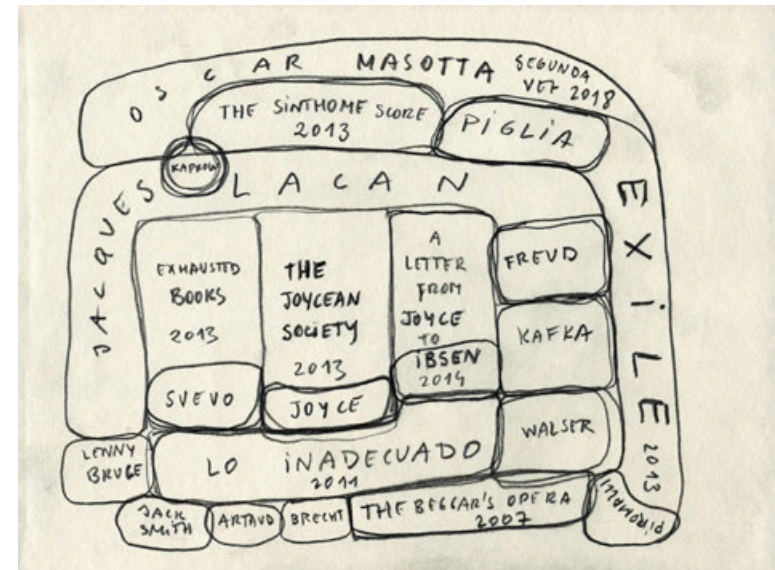 OSCAR MASOTTA SEGUNDA
VEZ 2018
THE SINTHOME SCORE
2013
PIGLIA
KAPROW
JACQUES LACAN
EXILE 2013
EXHAUSTED
BOOKS
2013
THE
JOYCEAN
SOCIETY
2013
A
LETTER
FROM
JOYCE
TO
IBSEN
2014
FREUD
KAFKA
SVEVO
JOYCE
WALSER
LENNY
BRUCE
LO INADECUADO
2011
JACK
SMITH
ARTAUD
BRECHT
THE BEGGAR'S OPERA
2007
PIROMALLI